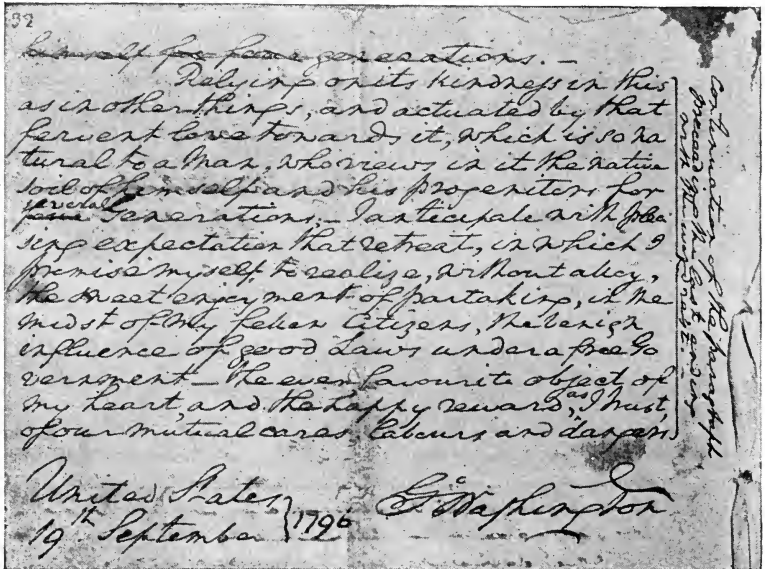 32
himself for four generations. —
Relying on its kindness in this
as in other things, and actuated by that
fervent love towards it, which is so na
tural to a Man, who views in it the native
soil of himself and his progenitors for
several
four Generations, — I anticipate with plea
sing expectation that retreat, in which I
promise myself, to realize, without alloy,
the sweet enjoyment of partaking, in the
midst of my fellow Citizens, the benign
influence of good Laws under a free Go
vernment — the ever favourite object of
my heart, and the happy reward, as I trust,
of our mutual cares labours and dangers
United States
19th September } 1796
Go Washington
Continuation of the paragraph
preceed'g the last ending
with the word "rest". —